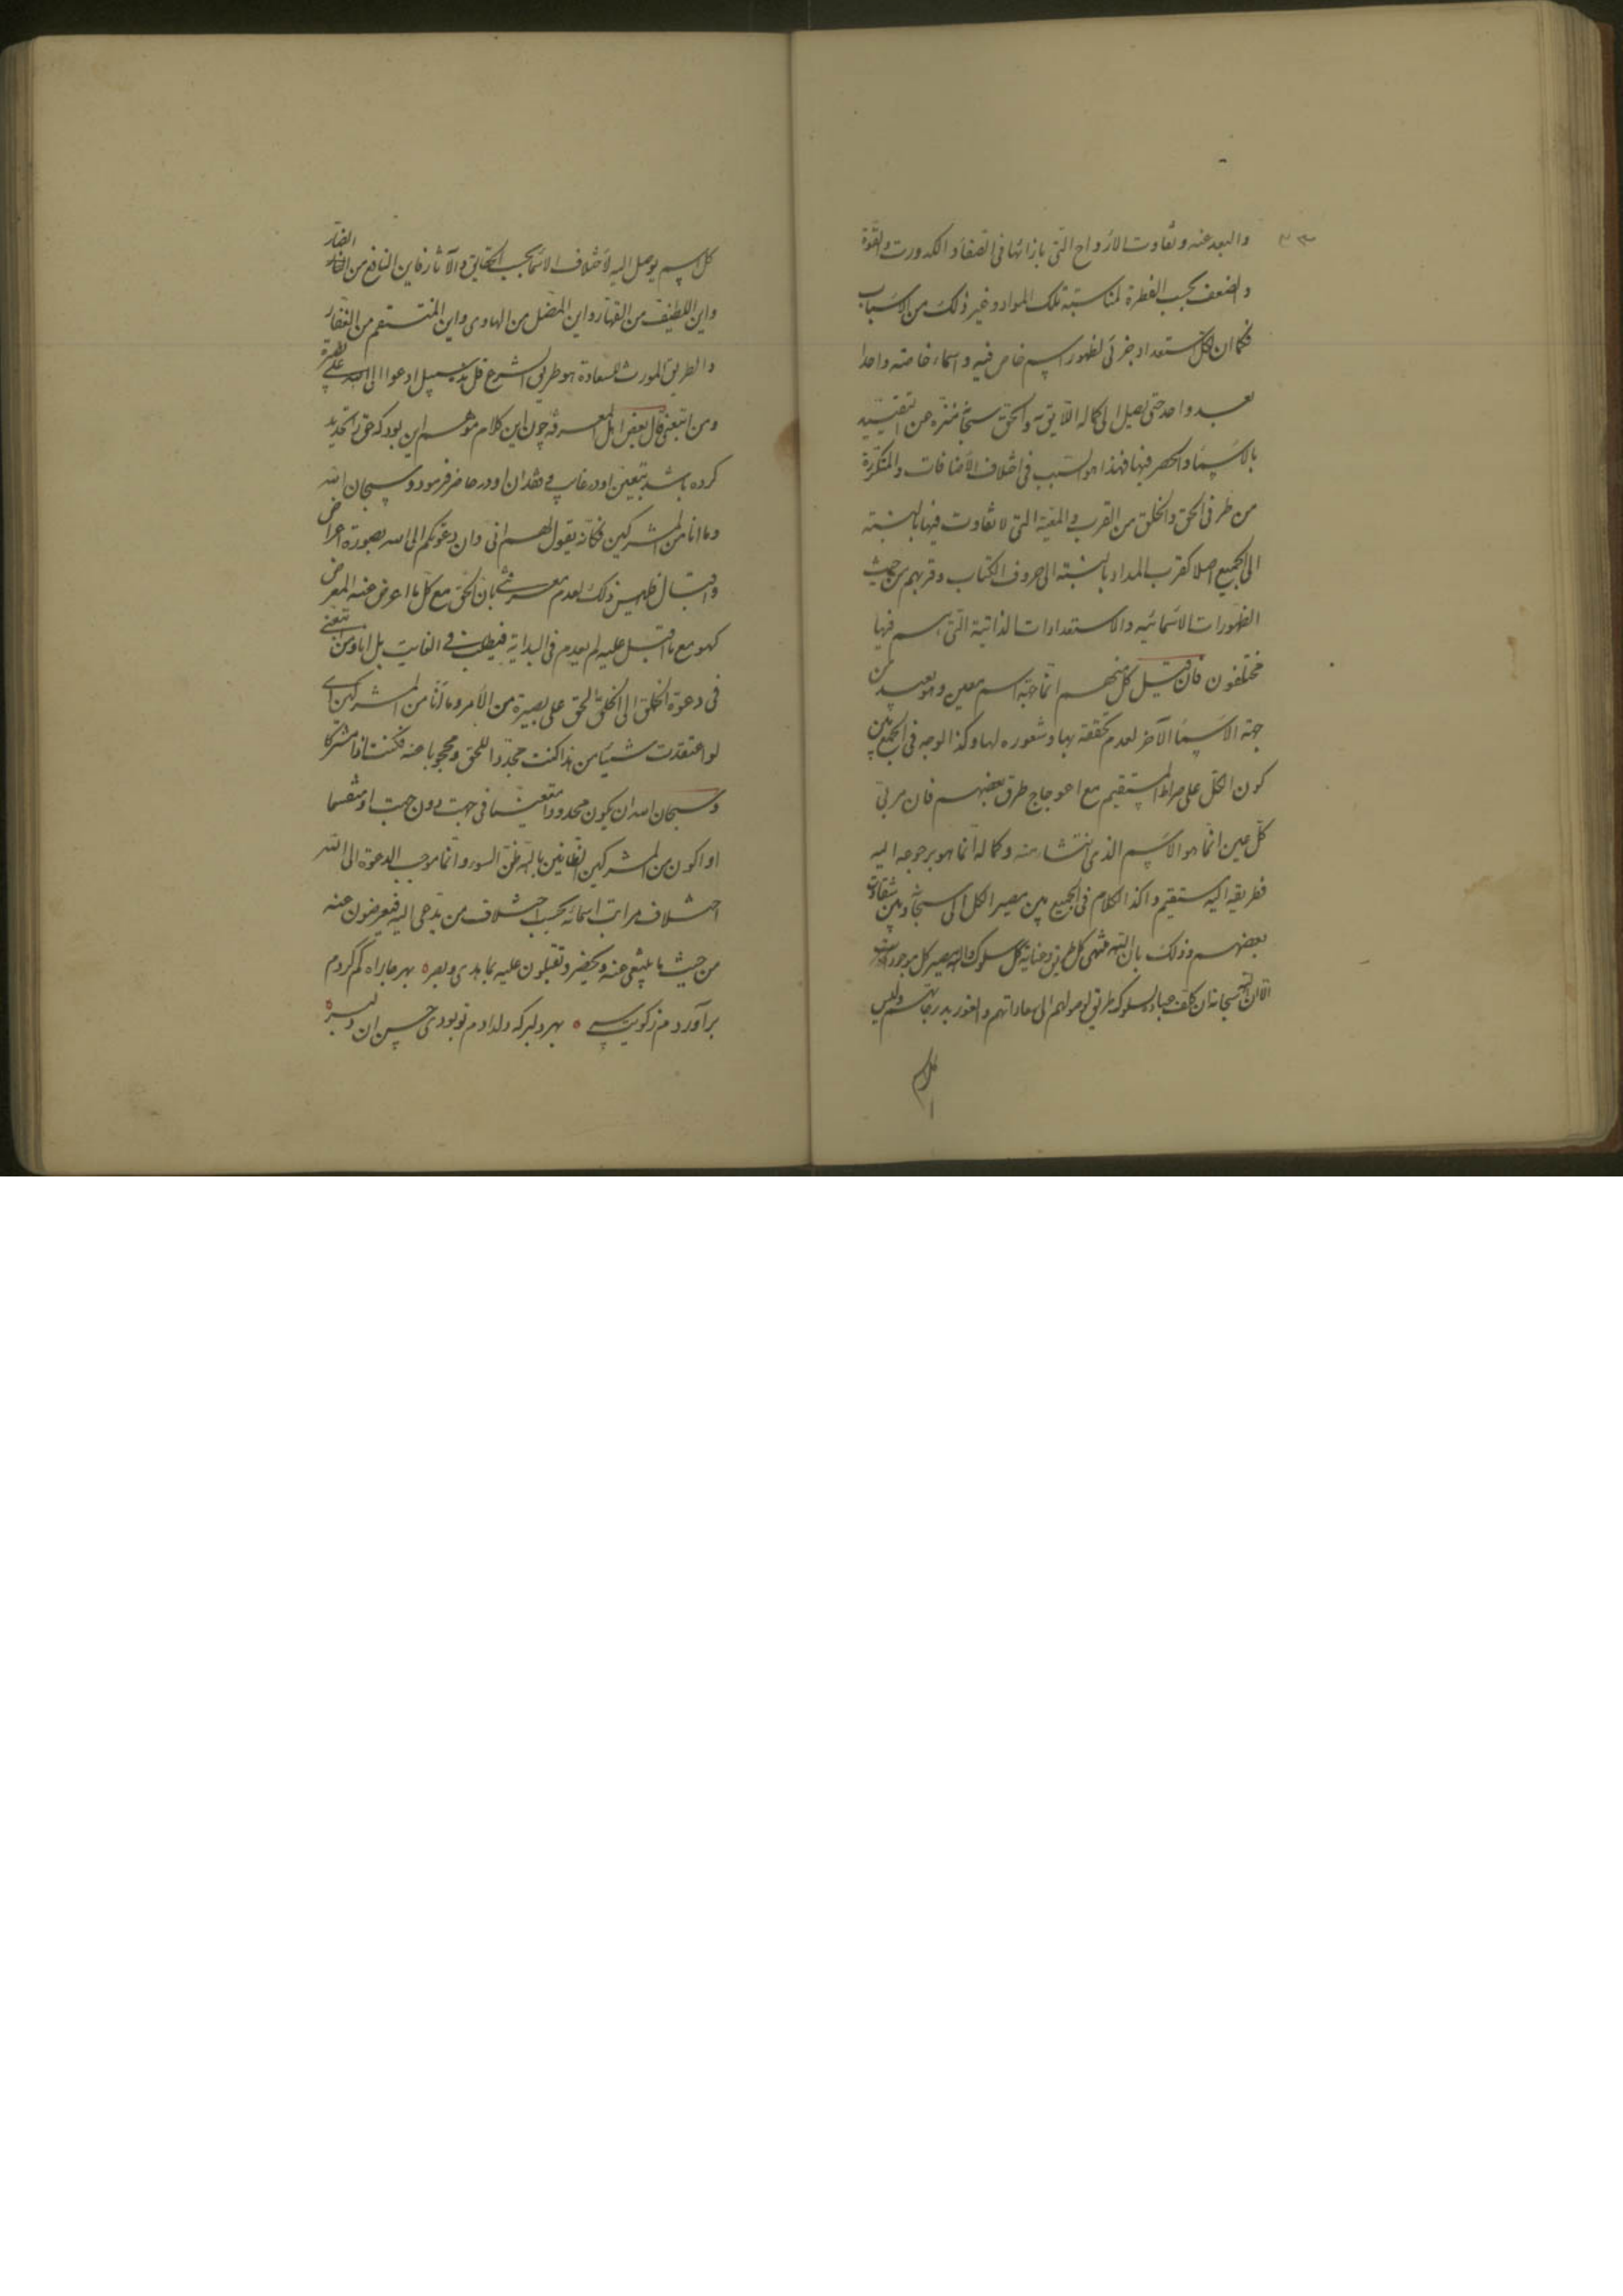 ٣٣
والبعد عنه وتفاوت الارواح التی بازائها فی الصفاء والکدورت والقوة
والضعف بحسب الفطرة لمناسبة تلک المواد وغیر ذلک من الاسباب
فکما ان لکل استعداد جزئی لظهور اسم خاص فیه واسماء خاصه واحدا
بعد واحد حتی یصل الی کماله اللایق به والحق سبحانه منزه عن التقیید
بالاسماء والحصر فیها فهذا هو السبب فی اختلاف الاضافات والمتکررة
من طرفی الحق والخلق من القرب والمعیة التی لا تفاوت فیها بالنسبته
الی الجمیع اصلا کقرب المداد بالنسبته الی حروف الکتاب وقربهم من حیث
الظهورات الاسمائیه والاستعدادات الذاتیة التی هم فیها
مختلفون فان قیل کل منهم انما جهة اسم معین وهو بعید من
جهة الاسماء الآخر لعدم تحققه بها وشعوره لها وکذا الوجه فی الجمع بین
کون الکل علی صراط المستقیم مع اعوجاج طرق بعضهم فان مربی
کل عین انما هو الاسم الذی انتشا منه وکماله انما هو برجوعه الیه
فطریقه الیه مستقیم وکذا الکلام فی الجمیع بین مصیر الکل الی الله سبحانه وبین شقاوت
بعضهم وذلک بان الله منتهی کل طریق وغایة کل سلوک والیه مصیر کل موجود
الا ان الله سبحانه ان کلف عباده بسلوک طریق یوصلهم الی سعاداتهم والفوز بدرجاتهم ولیس
کل اسم
کل اسم یوصل الیه لاختلاف الاسماء بحسب الحقایق والآثار فاین النافع من الضار
واین اللطیف من القهار واین المضل من الهادی واین المنتقم من الغفار
والطریق المورث للسعادة هو طریق الشرع قل هذه سبیلی ادعوا الی الله علی بصیرة
ومن اتبعنی قال بعض اهل المعرفه چون این کلام موهم این بود که حق را تحدید
کرده باشد بتعین او در غایب وفقدان او در حاضر فرمود وسبحان الله
وما انا من المشرکین فکانه یقول لهم انی وان دعوتکم الی الله بصورة اعراض
واقبال فلیس ذلک لعدم معرفتی بان الحق مع کل ما اعرض عنه المعرض
کهو مع ما اقبل علیه لم یعدم فی البدایة فیطلب فی الغایت بل انا ومن اتبعنی
فی دعوة الخلق الی الحق علی بصیرة من الامر وما انا من المشرکین ای
لو اعتقدت شیئا من هذا کنت محددا للحق ومحجوبا عنه فکنت اذا مشرکا
وسبحان الله ان یکون محدودا متعینا فی جهت دون جهت او منقسما
او اکون من المشرکین الظانین بالله ظن السوء وانما موجب الدعوة الی الله
اختلاف مراتب اسمائه بحسب اختلاف من یدعی الیه فیعرضون عنه
من حیث ما یتقی عنه ویحضر وتقبلون علیه بما یهدی ویصر ٥ بهر جا راه گم کردم
برآوردم ز کویت سر ٥ بهر دلبر که دل دادم تو بودی حسن ان دلبر ٥